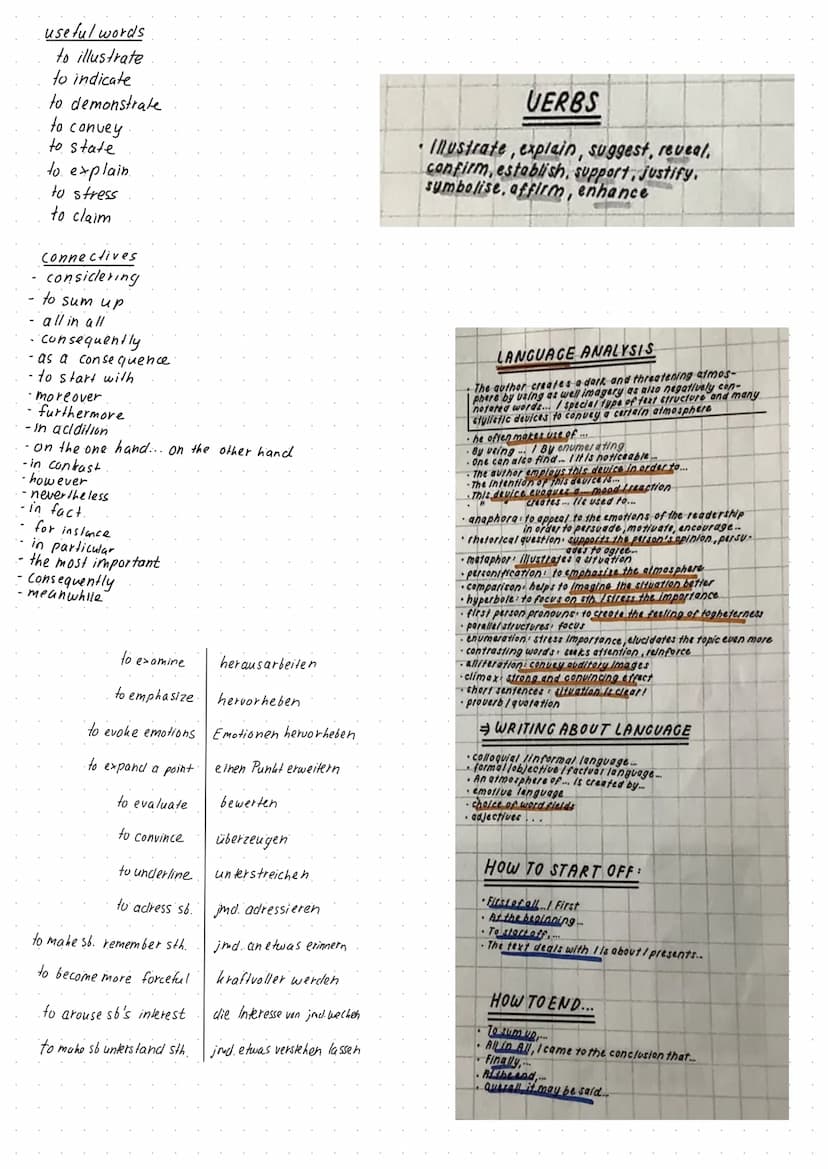 useful words
to illustrate
to indicate
to demonstrate
to convey
to state
to explain
to stress
to claim
connectives
- considering
- to sum up
- all in all
- consequently
- as a consequence
- to start with
- moreover
- furthermore
- in addition
- on the one hand... on the other hand
- in contast
- however
- nevertheless
- in fact
- for instance
- in particular
- the most important
- consequently
- meanwhile
to examine herausarbeiten
to emphasize hervorheben
to evoke emotions Emotionen hervorheben
to expand a point einen Punkt erweitern
to evaluate bewerten
to convince überzeugen
to underline unterstreichen
to adress sb. jmd. adressieren
to make sb. remember sth. jmd. an etwas erinnern
to become more forceful kraftvoller werden
to arouse sb's interest die Interesse von jmd. wecken
to make sb understand sth. jmd. etwas verstehen lassen
VERBS
• Illustrate, explain, suggest, reveal,
confirm, establish, support, justify,
symbolise, affirm, enhance
LANGUAGE ANALYSIS
• The author creates a dark and threatening atmos-
phere by using as well imagery as also negatively con-
notated words... / special type of text structure and many
stylistic devices to convey a certain atmosphere
• he often makes use of ...
• By using ... / By enumerating
• One can also find... / It is noticeable...
• The author employs this device in order to...
• The intention of this device is...
• This device evoques a... mood / reaction
• " " creates... /is used to...
• anaphora: to appeal to the emotions of the readership
in order to persuade, motivate, encourage...
• rhetorical question: supports the person's opinion, persu-
ades to agree...
• metaphor: illustrates a situation
• personification: to emphasize the atmosphere
• comparison: helps to imagine the situation better
• hyperbole: to focus on sth. / stress the importance
• first person pronouns: to create the feeling of togheterness
• parallel structures: focus
• enumeration: stress importance, elucidates the topic even more
• contrasting words: seeks attention, reinforce
• alliteration: convey auditory images
• climax: strong and convincing effect
• short sentences: situation is clear!
• proverb / quotation
⇒ WRITING ABOUT LANGUAGE
• colloquial / informal language...
• formal / objective / factual language...
• An atmosphere of... is created by...
• emotive language
• choice of word fields
• adjectives ...
HOW TO START OFF:
• First of all... / First
• At the beginning...
• To start off,...
• The text deals with / is about / presents..
HOW TO END...
• To sum up,...
• All in All, I came to the conclusion that...
• Finally,...
• At the end,...
• Overall, it may be said...